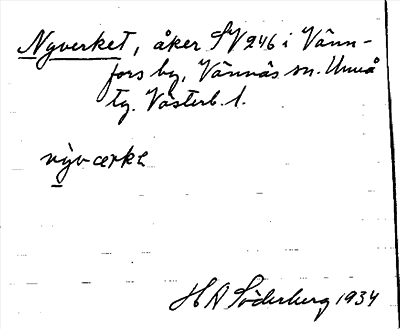 Nyverket, åker SV 246 i Vänn-
fors by, Vännäs sn. Umeå
tg. Västerb. l.
nỳværkε
H A Söderberg 1934